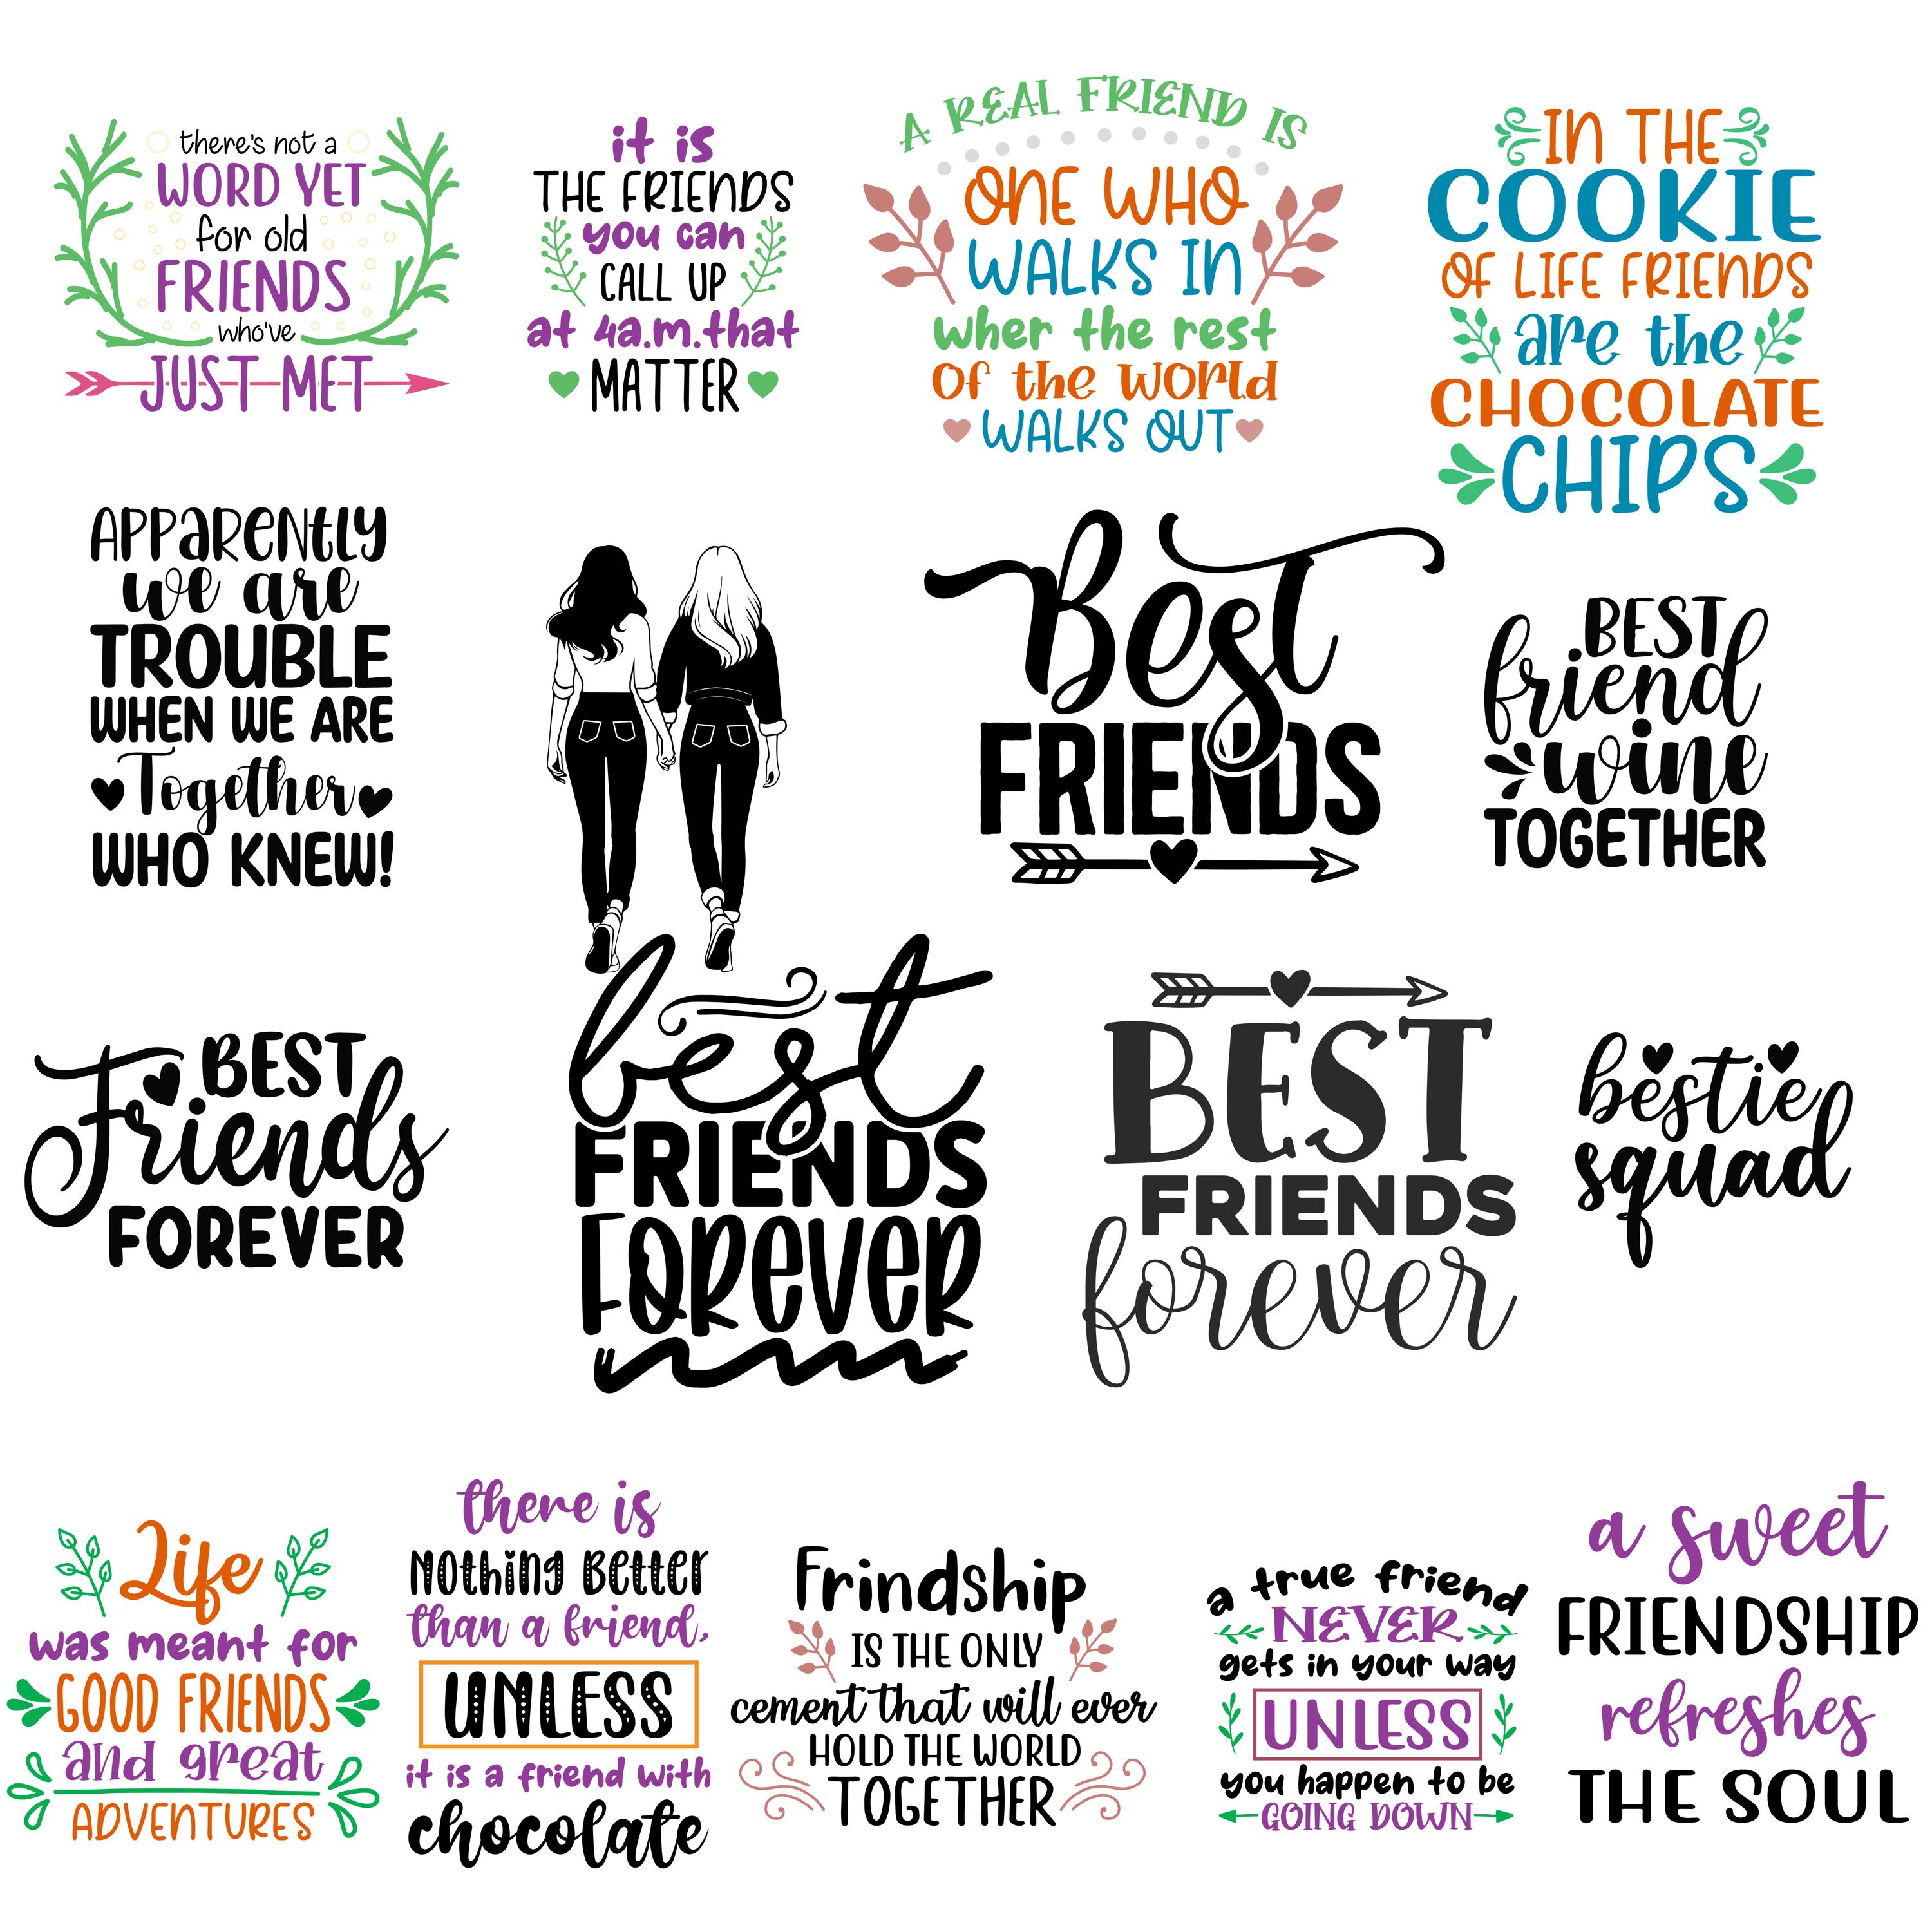 there's not a
WORD YET
for old
FRIENDS
who've
JUST MET
it is
THE FRIENDS
you can
CALL UP
at 4a.m.that
MATTER
A REAL FRIEND IS
ONE WHO
WALKS IN
wher the rest
Of the World
WALKS OUT
IN THE
COOKIE
OF LIFE FRIENDS
are the
CHOCOLATE
CHIPS
APPaReNtLY
we are
TROUBLE
WHEN WE ARE
Together
WHO KNEW!
Best
FRIENDS
BEST
friend
wine
TOGETHER
BEST
Friends
FOREVER
best
FRIENDS
FOReVeR
BEST
FRIENDS
forever
bestie
squad
Life
was meant for
GOOD FRIENDS
and great
ADVENTURES
there is
Nothing Better
than a friend,
UNLESS
it is a friend with
chocolate
Frindship
IS THE ONLY
cement that will ever
HOLD THE WORLD
TOGETHER
a true friend
NEVER
gets in your way
UNLESS
you happen to be
GOING DOWN
a sweet
FRIENDSHIP
refreshes
THE SOUL